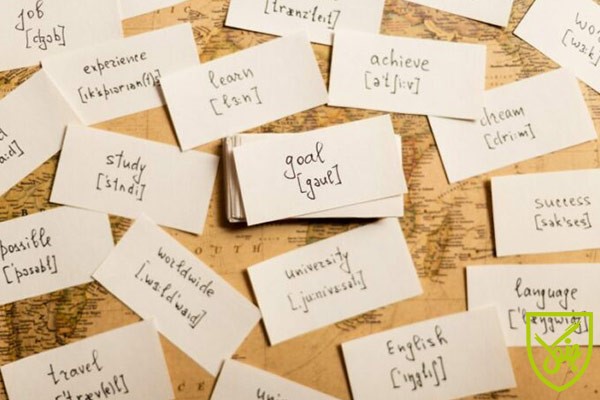 job
[dʒəb]
[trænz'leit]
experience
[ik'spiəriən(t)s]
learn
[lɜ:n]
achieve
[ə'tʃi:v]
dream
[dri:m]
study
['stʌdi]
goal
[gəul]
success
[sək'ses]
possible
['pɔsəbl]
worldwide
[ˌwɜ:ld'waid]
university
[ˌju:ni'vɜ:səti]
language
['læŋgwidʒ]
travel
['træv(ə)l]
English
['iŋgliʃ]